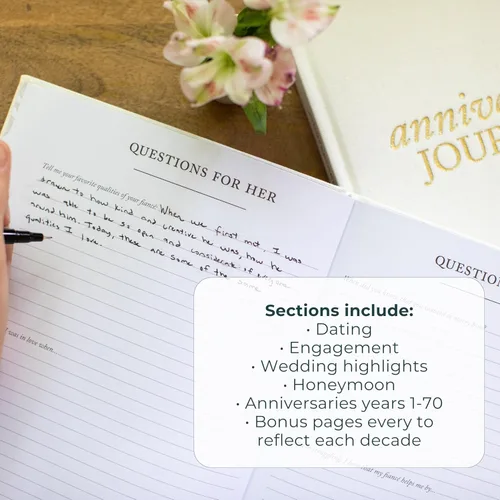 anniv
JOUR
QUESTIONS FOR HER
Tell me your favorite qualities of your fiancé: When we first met, I was
drawn to how kind and creative he was, how he
was able to be so open and considerate of
around him. Today, these are some of the same
qualities I love.
QUESTION
I was in love when
my fiancé helps me by...
Sections include:
• Dating
• Engagement
• Wedding highlights
• Honeymoon
• Anniversaries years 1-70
• Bonus pages every to
reflect each decade